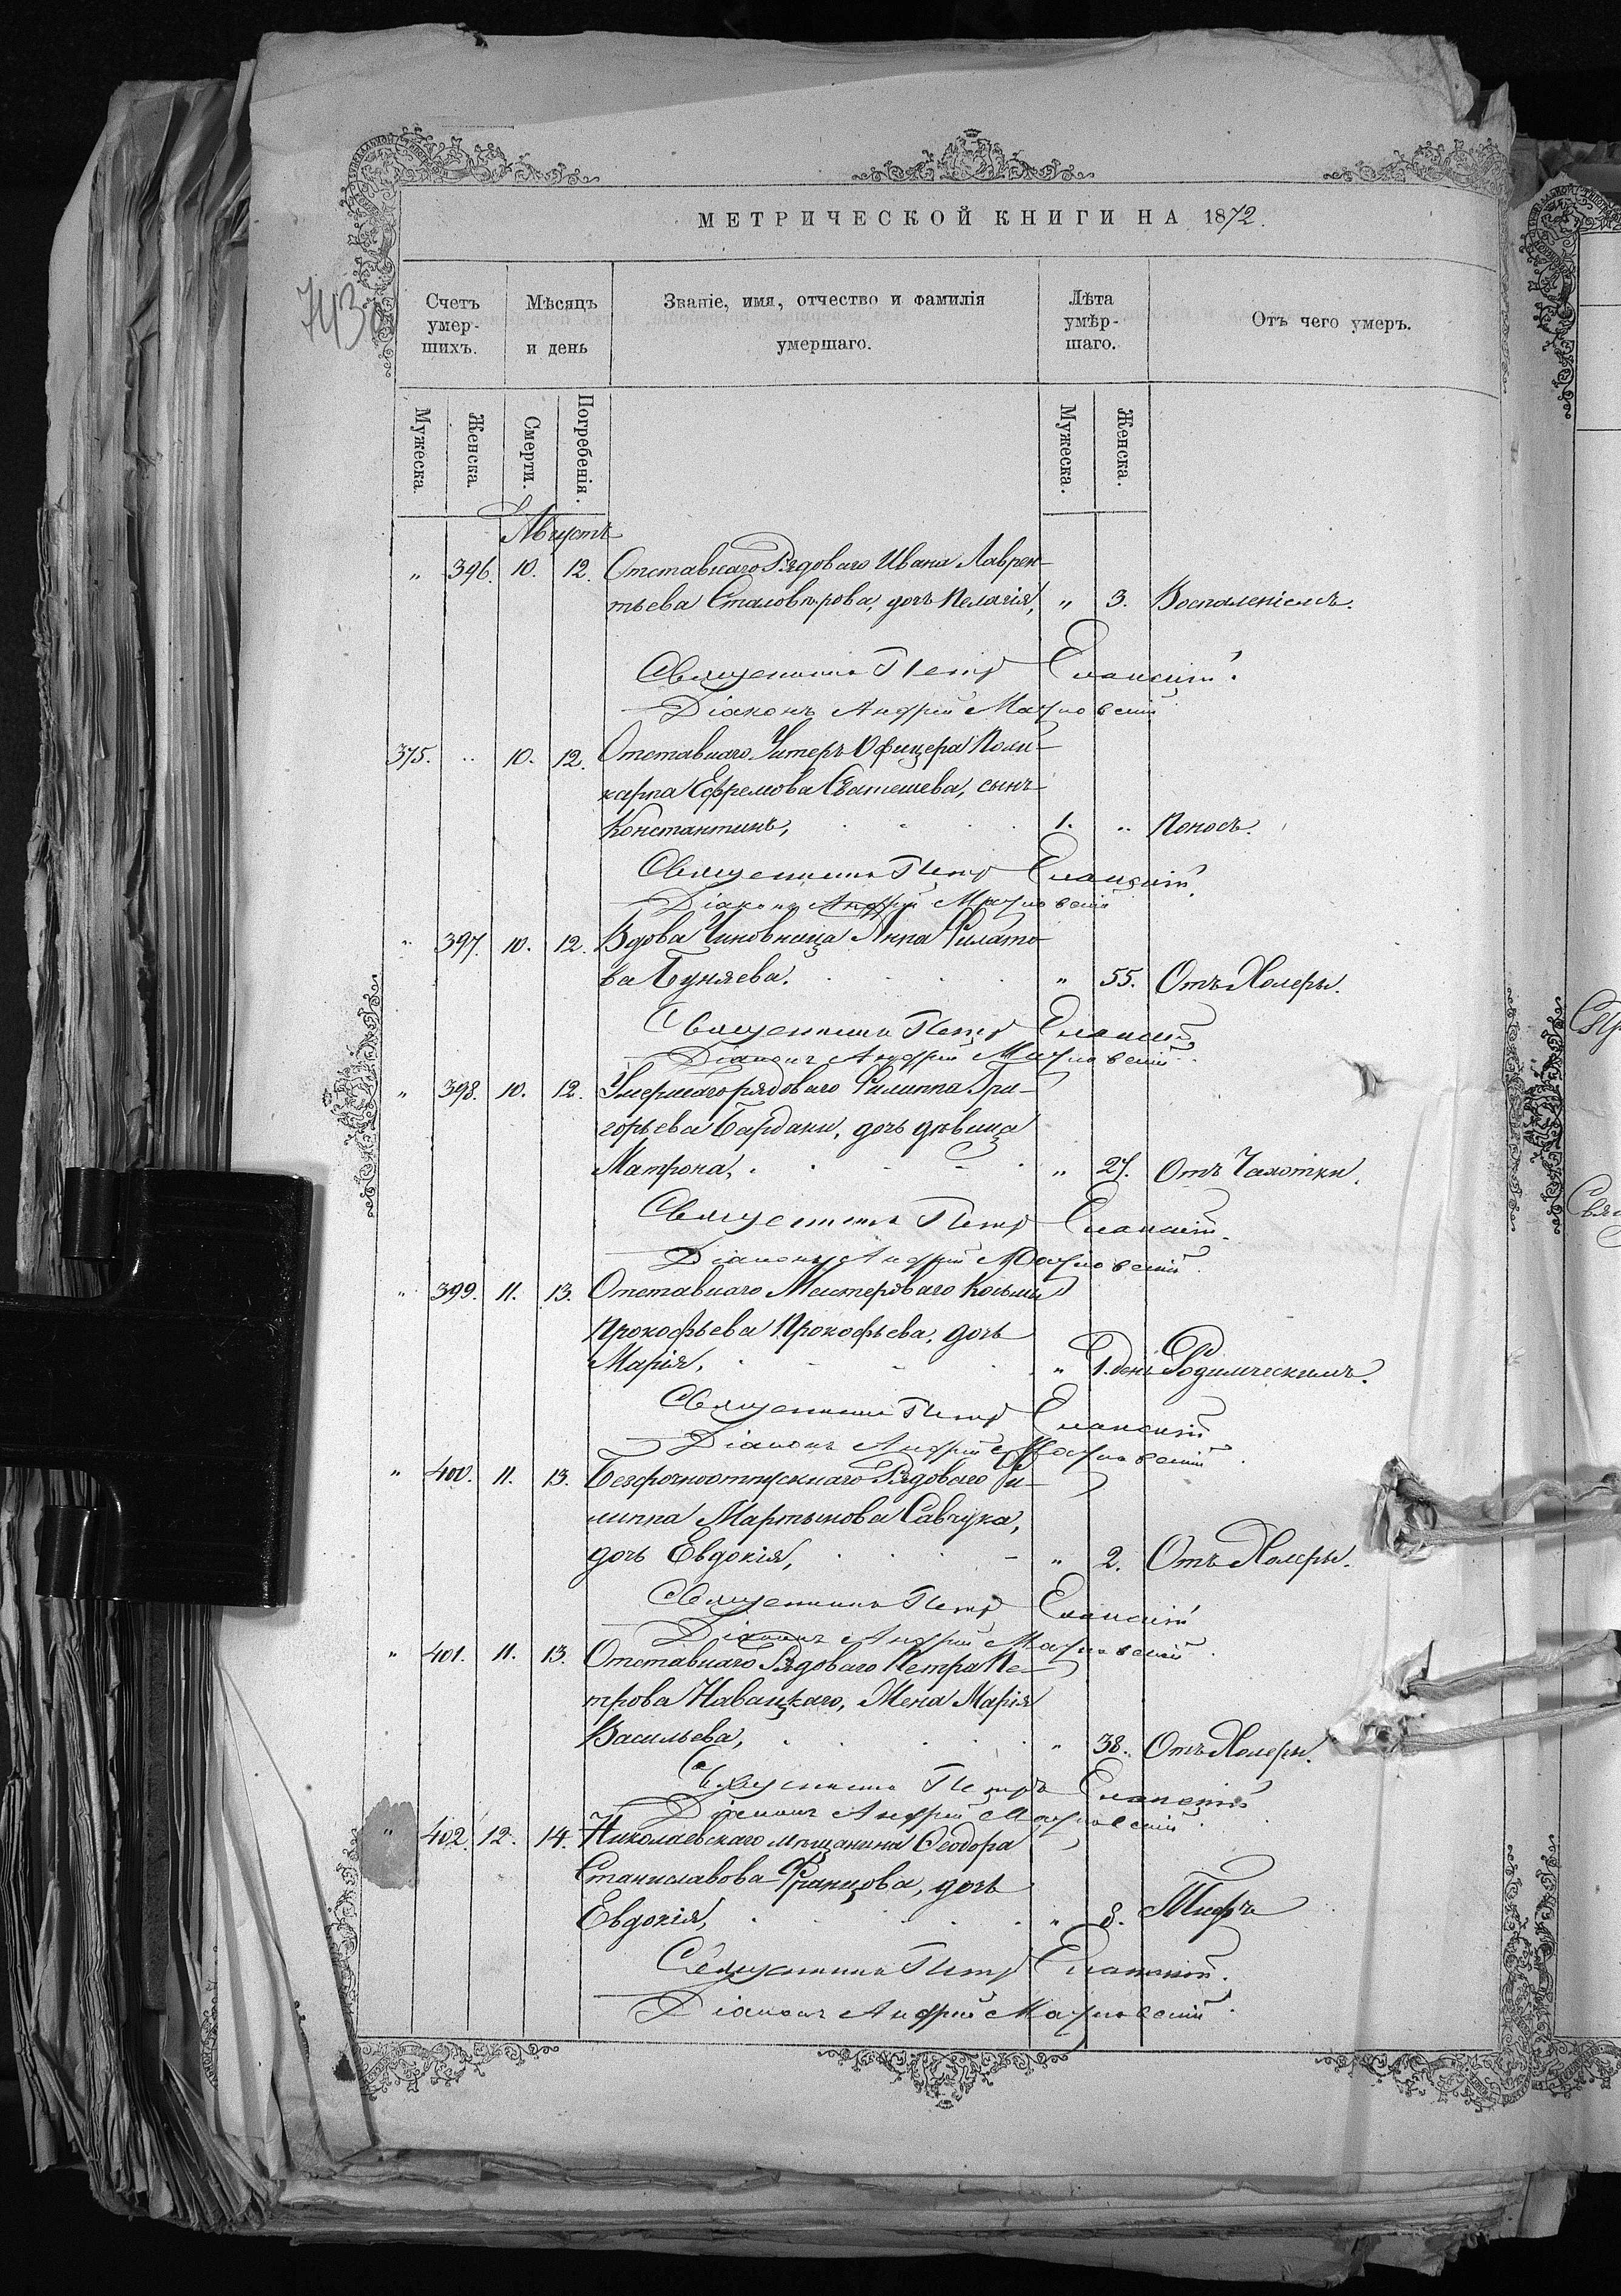 МЕТРИЧЕСКОЙ КНИГИ НА 1872.
743
Счетъ умер-шихъ. Мѣсяцъ и день Званіе, имя, отчество и фамилія умершаго. Лѣта умѣр-шаго. Отъ чего умеръ.
Мужеска. Женска. Смерти. Погребенія. Мужеска. Женска.
Августъ
„ 396. 10. 12. Отставнаго Рядоваго Ивана Лаврен-
тьева Сталовѣрова, дочь Пелагія, „ 3. Воспаленіемъ.
Священникъ Петръ Еланскій.
Діаконъ Андрей
375. „ 10. 12. Отставнаго Унтеръ Офицера Поли-
карпа Ефремова Сватешева, сынъ
Константинъ, 1. „ Поносъ.
Священникъ Петръ Еланскій.
Діаконъ Андрей
„ 397. 10. 12. Вдова Чиновница Анна Филато-
ва Буняева. „ 55. Отъ Холеры.
Священникъ Петръ Еланскій
Діаконъ Андрей
„ 398. 10. 12. Умершаго рядоваго Филиппа Гри-
горьева Бардаки, дочь дѣвица
Матрона, „ 27. Отъ Чахотки.
Священникъ Петръ Еланскій.
Діаконъ Андрей
„ 399. 11. 13. Отставнаго Мастероваго Косьмы
Прокофьева Прокофьева, дочь
Марія, „ 1. день Родимческимъ.
Священникъ Петръ Еланскій
Діаконъ Андрей
„ 400. 11. 13. Безсрочноотпускнаго Рядоваго Фи-
липпа Мартынова Савчука,
дочь Евдокія, „ 2. Отъ Холеры.
Священникъ Петръ Еланскій
Діаконъ Андрей
„ 401. 11. 13. Отставнаго Рядоваго Петра Пе-
трова Навацкаго, Жена Марія
Васильева, „ 38. Отъ Холеры.
Священникъ Петръ Еланскій
Діаконъ Андрей
„ 402. 12. 14. Николаевскаго мѣщанина Ѳеодора
Станиславова Францова, дочь
Евдокія, „ 8. Тифъ
Священникъ Петръ Еланскій.
Діаконъ Андрей